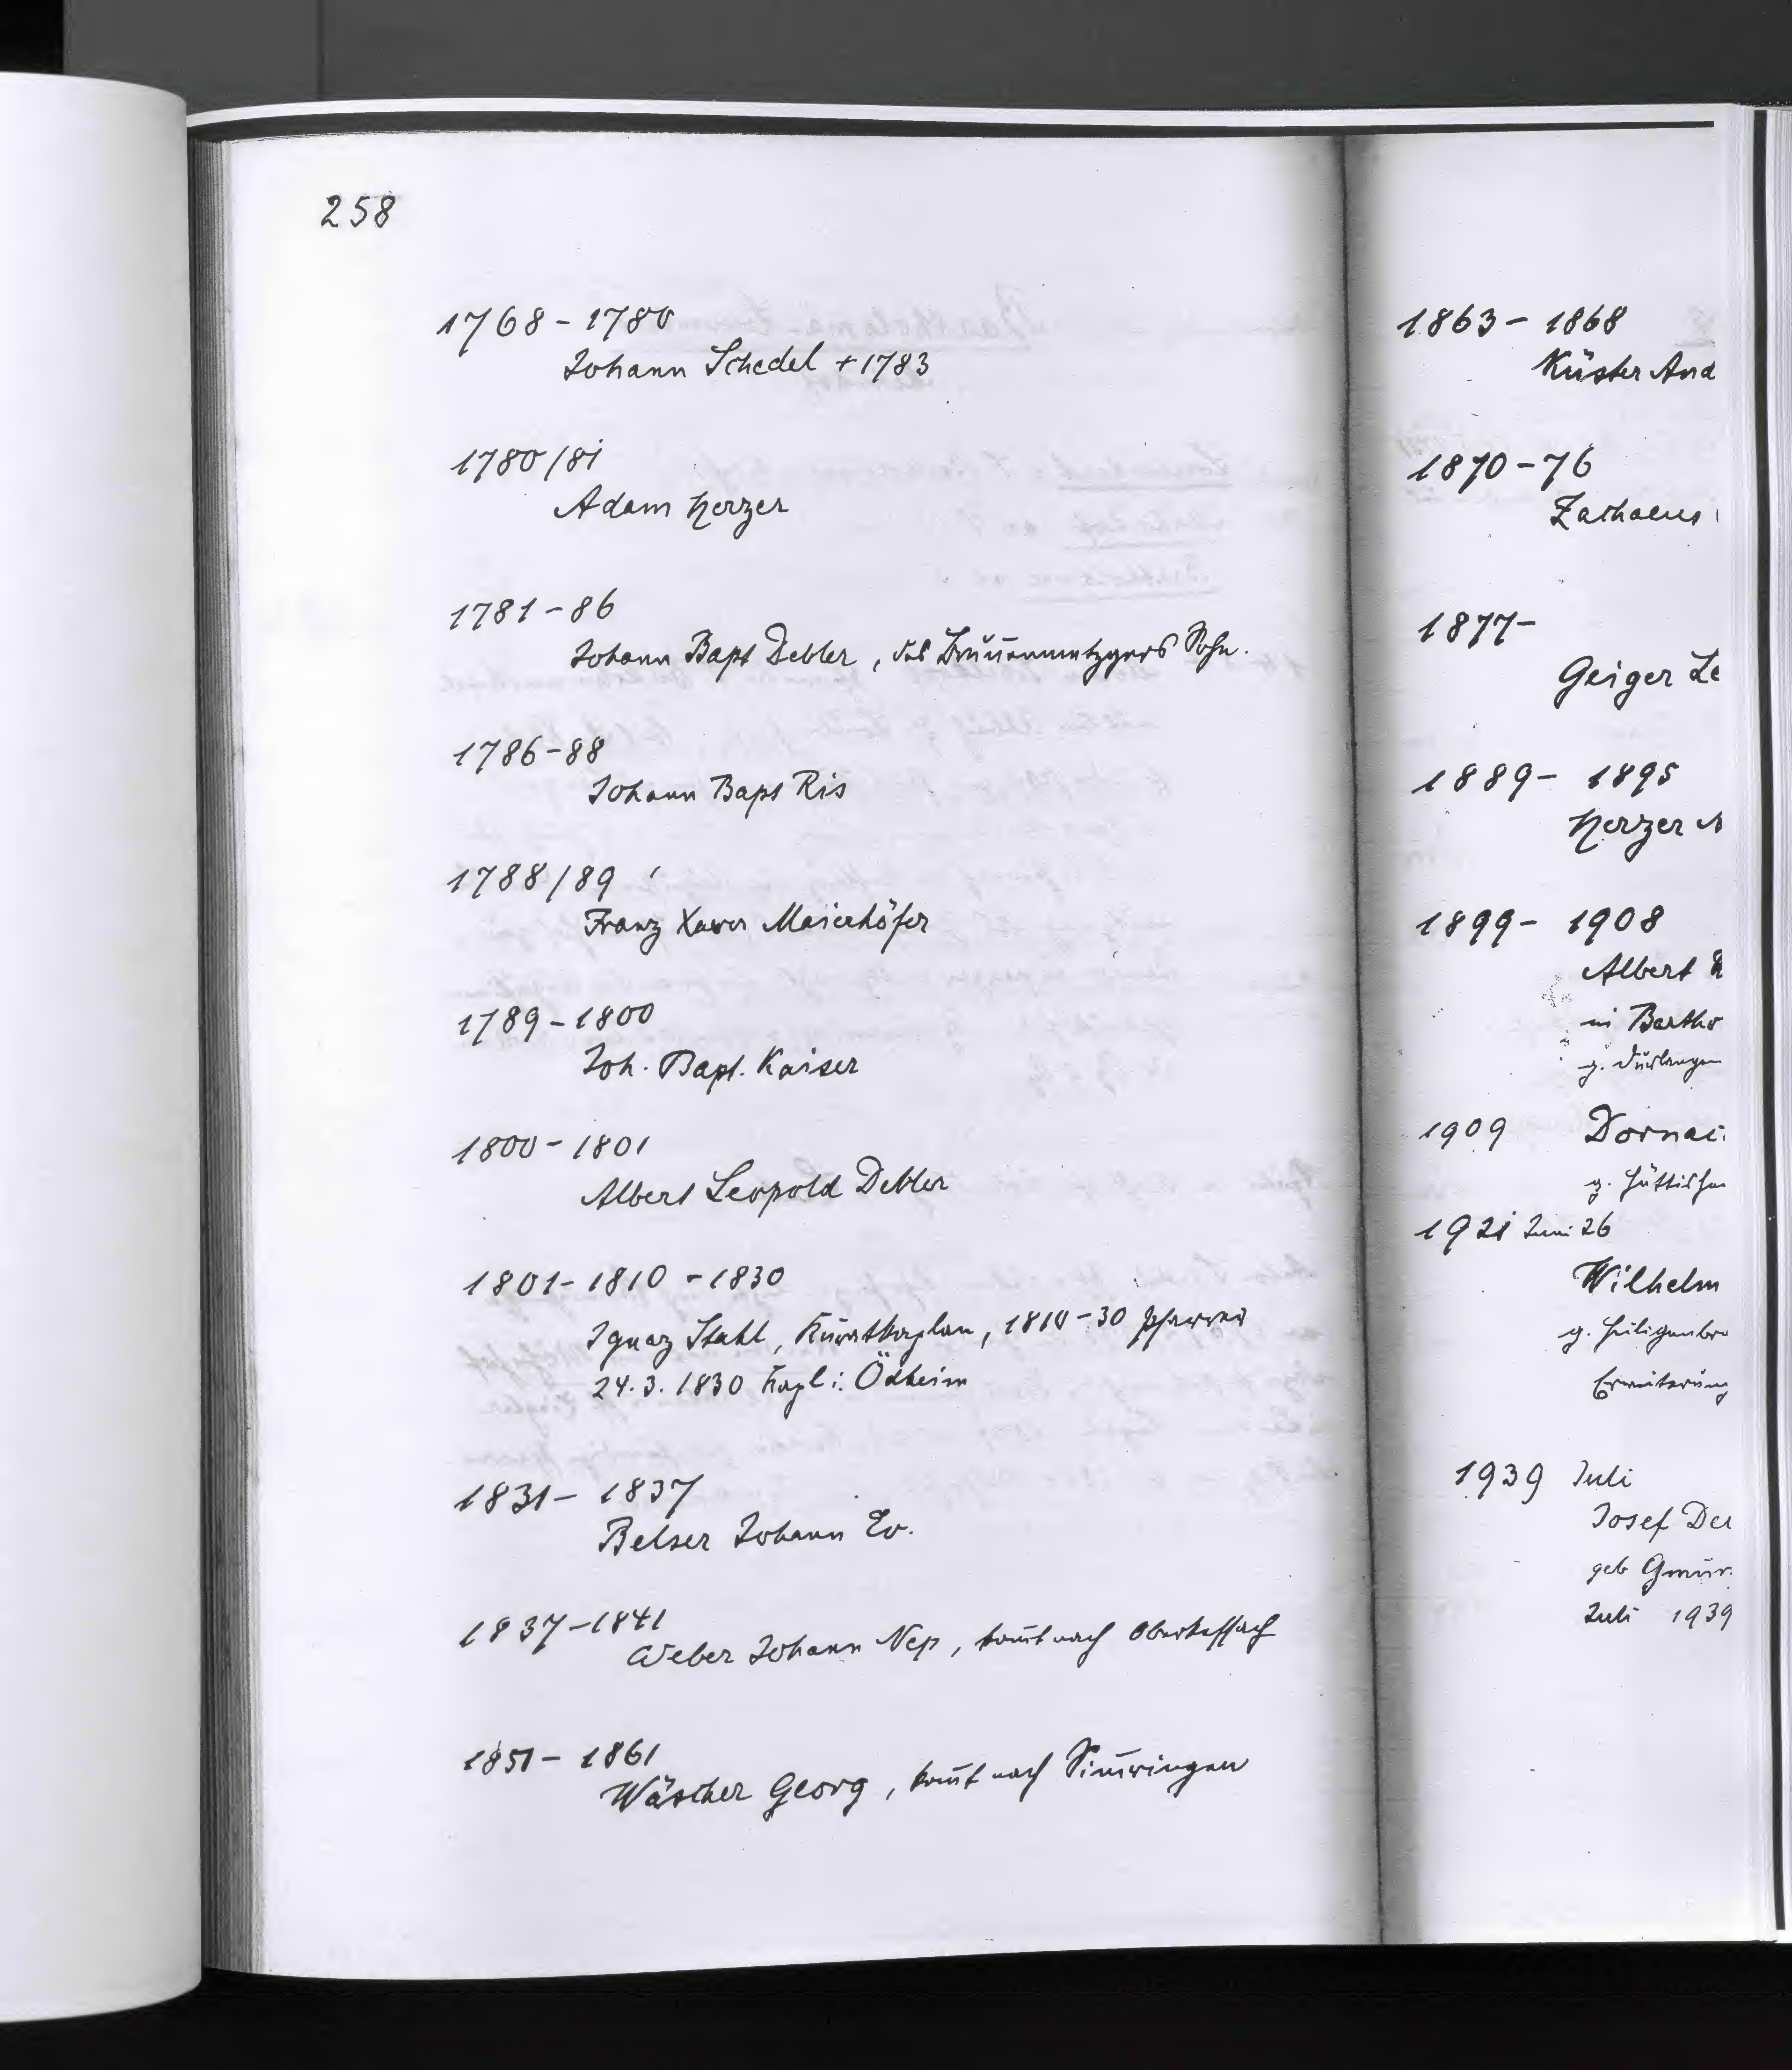 258
1768 - 1780
Johann Schedel + 1783
1780/81
Adam Herzer
1781 - 86
Johann Bapt Debler, des Brun̄enmetzgers Sohn.
1786 - 88
Johann Bapt Ris
1788/89
Franz Xaver Maierhöfer
1789 - 1800
Joh. Bapt. Kaiser
1800 - 1801
Albert Leopold Debler
1801 - 1810 - 1830
Ignaz Stahl, Kuratkaplan, 1810 - 30 Pfarrer
24. 3. 1830 Kapl i. Ödheim
1831 - 1837
Belser Johann Ev.
1837 - 1841
Weber Johann Nep, kom̄t nach Oberkessach
1851 - 1861
Wäscher Georg, kom̄t nach Sim̄ringen
1863 - 1868
Küster And
1870 - 76
Zachaeus
1877 -
Geiger Le
1889 - 1895
Herzer
1899 - 1908
Albert
in Bartho
g. Durlangen
1909 Dornac
g. Hüttlshe
1921 Juni 26
Wilhelm
g. Heiligenbro
Erweiterung
1939 Juli
Josef Der
geb Gmün
Juli 1939